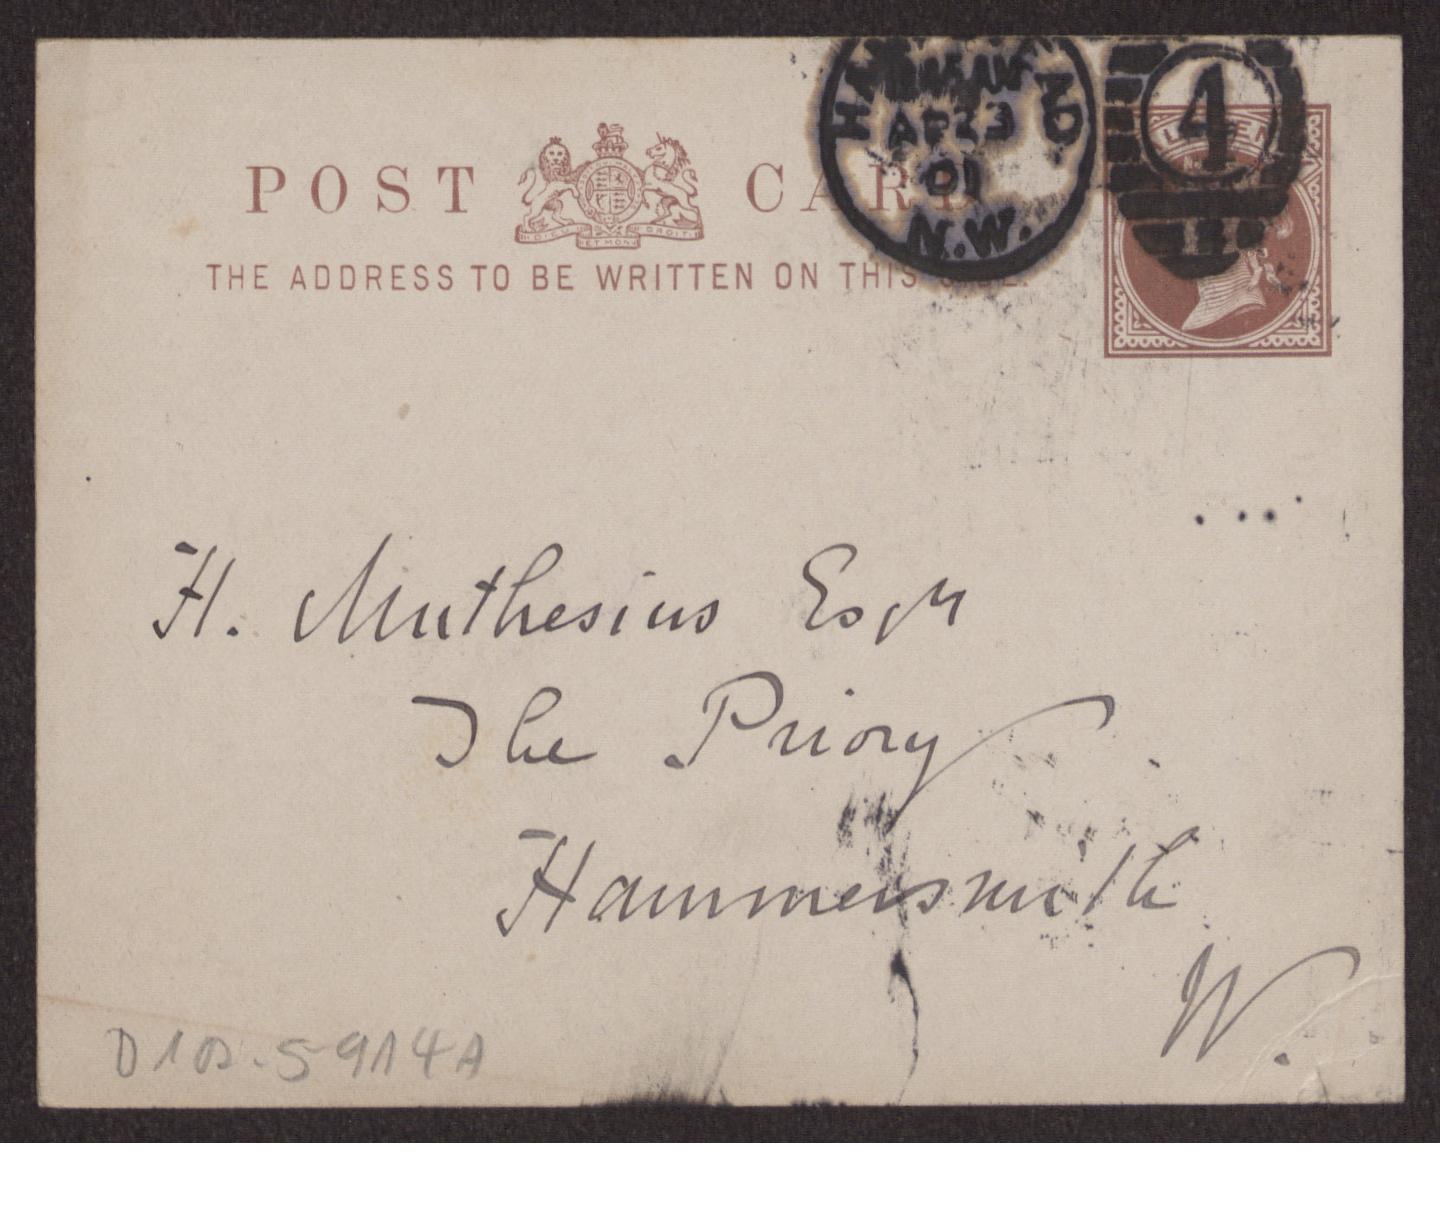 POST CARD
DIEU ET MON DROIT
THE ADDRESS TO BE WRITTEN ON THIS SIDE.
AP 23
01
N.W.
4
H. Muthesius Esqr
The Priory
Hammersmith
W.
D 102-5914A